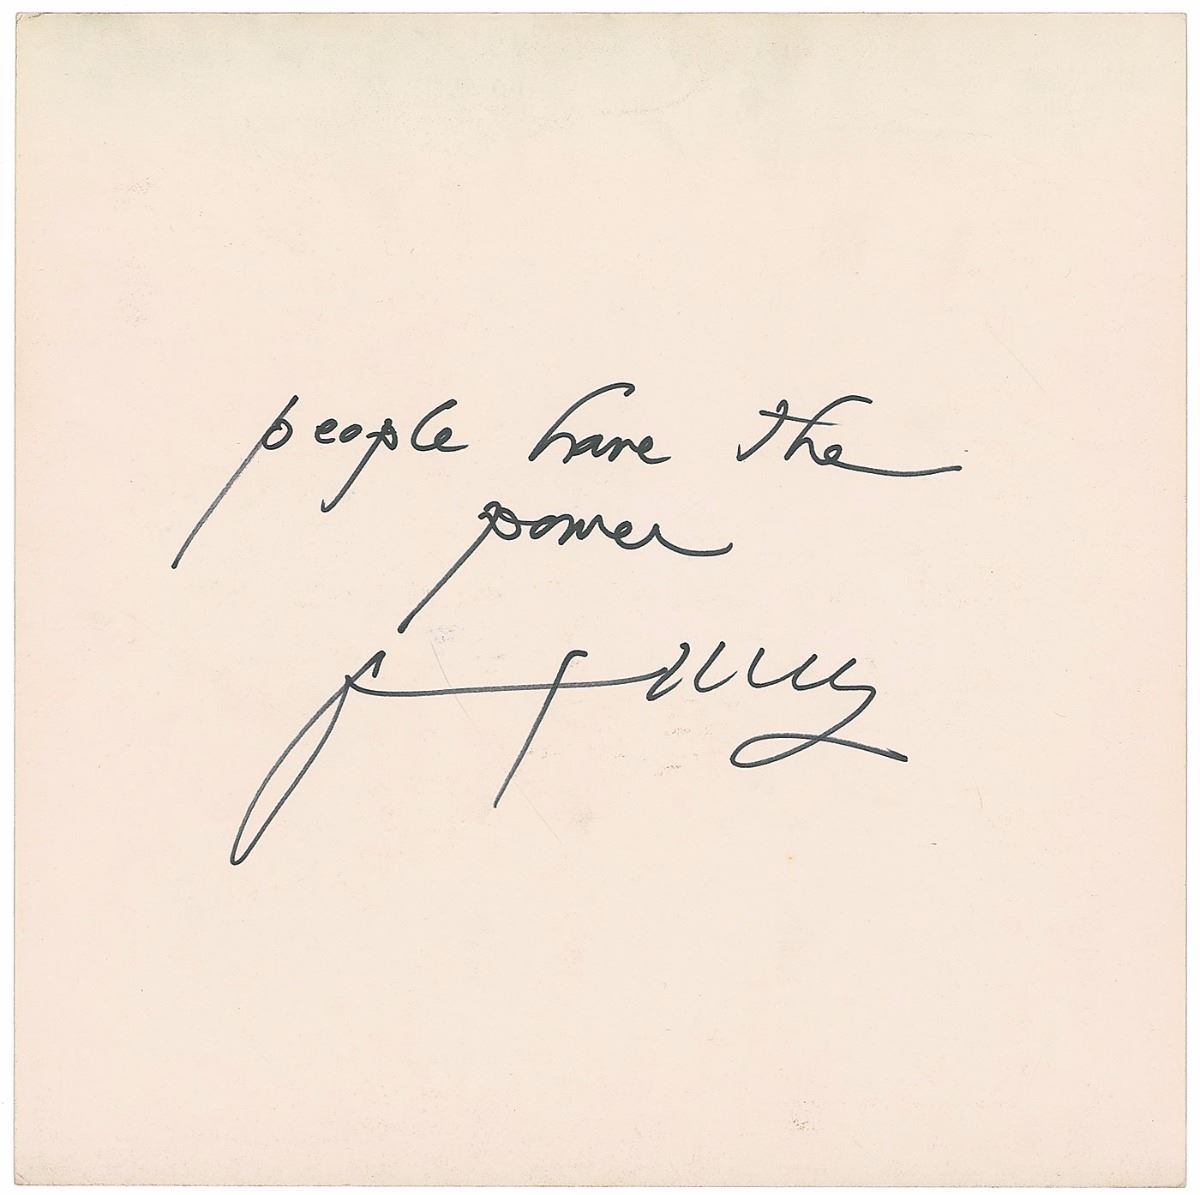 people have the
power